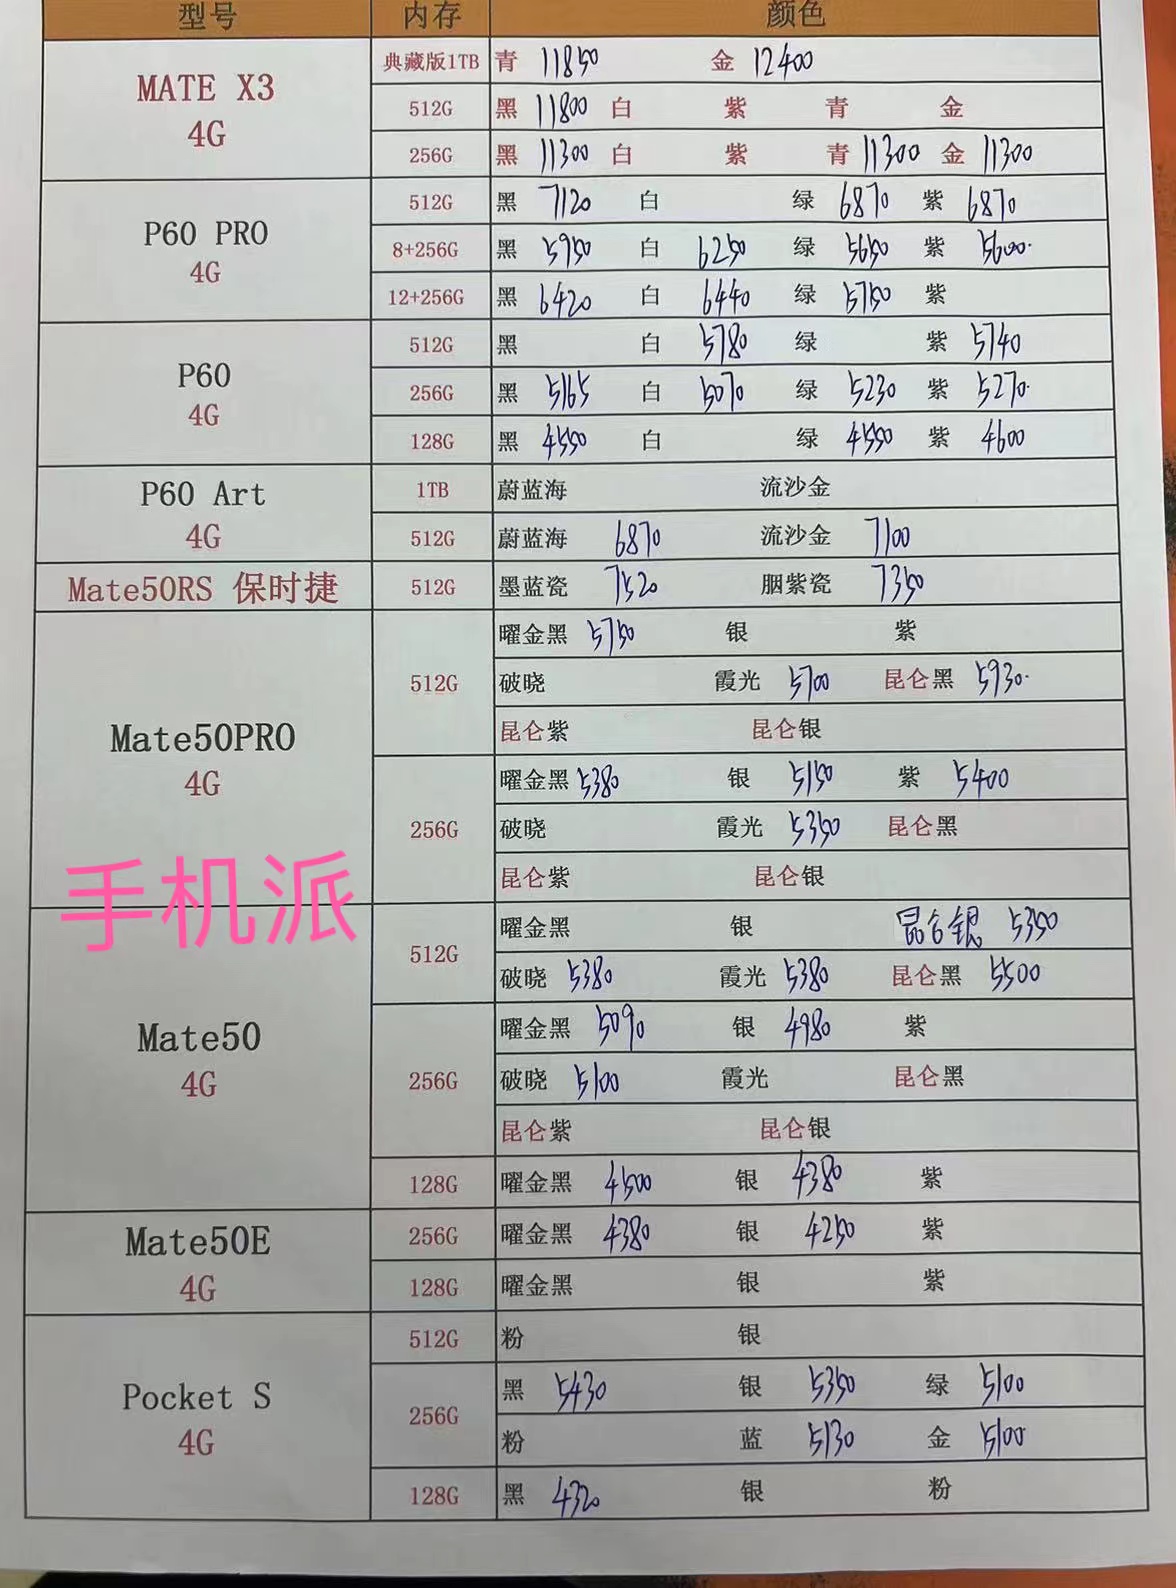 型号 内存 颜色
MATE X3
4G
典藏版1TB 青 11850 金 12400
512G 黑 11800 白 紫 青 金
256G 黑 11300 白 紫 青 11300 金 11300
P60 PRO
4G
512G 黑 7120 白 绿 6870 紫 6870
8+256G 黑 5950 白 6250 绿 5650 紫 5600
12+256G 黑 6420 白 6440 绿 5750 紫
P60
4G
512G 黑 白 5780 绿 紫 5740
256G 黑 5165 白 5070 绿 5230 紫 5270
128G 黑 4550 白 绿 4550 紫 4600
P60 Art
4G
1TB 蔚蓝海 流沙金
512G 蔚蓝海 6870 流沙金 7100
Mate50RS 保时捷 512G 墨蓝瓷 7520 胭紫瓷 7350
Mate50PRO
4G
512G
曜金黑 5750 银 紫
破晓 霞光 5700 昆仑黑 5930
昆仑紫 昆仑银
256G
曜金黑 5380 银 5150 紫 5400
破晓 霞光 5350 昆仑黑
昆仑紫 昆仑银
手机派
Mate50
4G
512G
曜金黑 银 昆仑银 5350
破晓 5380 霞光 5380 昆仑黑 5500
256G
曜金黑 5090 银 4980 紫
破晓 5100 霞光 昆仑黑
昆仑紫 昆仑银
128G 曜金黑 4500 银 4380 紫
Mate50E
4G
256G 曜金黑 4380 银 4250 紫
128G 曜金黑 银 紫
Pocket S
4G
512G 粉 银
256G
黑 5430 银 5350 绿 5100
粉 蓝 5130 金 5100
128G 黑 4320 银 粉